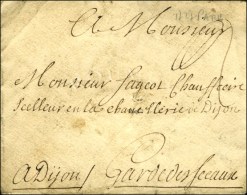 A Monsieur
Monsieur Sageot Chauffecire
Scelleur en la chancellerie a Dijon
A Dijon / Garde des Sceaux